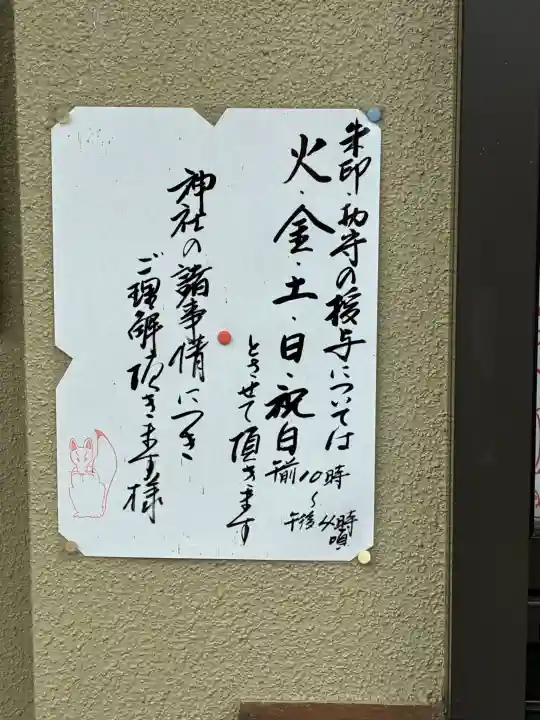 朱印・お守の授与については
火・金・土・日・祝日
午前10時
～
午後4時
頃
とさせて頂きます
神社の諸事情につき
ご理解頂きます様